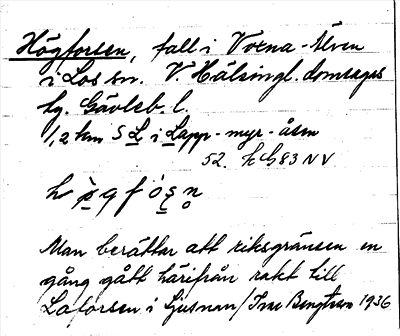 Högforsen, fall i Voxna-Älven
i Los sn. V. Hälsingl. domsagas
tg. Gävleb. l.
1,2 km S L i Lapp-myr-åsen
52. h G 83 NV
Man berättar att riksgränsen en
gång gått härifrån rakt till
Laforsen i Ljusnan / Ivar Bengtsson 1936